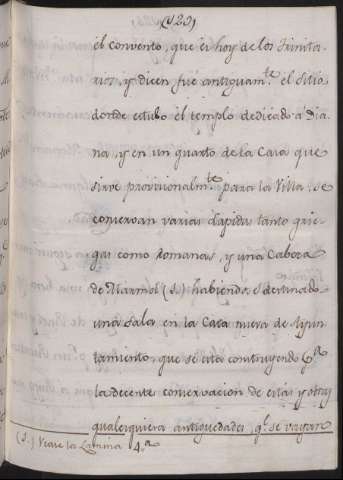 (123)
el convento, que es hoy de los Trinita-
rios, y dicen fué antiguam.te el sitio
donde estubo el templo dedicado á Dia
na, y en un quarto de la Casa que
sirve provisionalm.te para la Villa, se
conservan varias Lapidas tanto grie-
gas como romanas, y una Cabeza
de Marmol (S.) habiendo destinado
una sala en la Casa nueva de Ayun
tamiento, que se está construyendo
la decente conservacion de estas y otras
qualesquiera antiguedades, q.e se vayan
(S.) Vease la Lamina 4.a